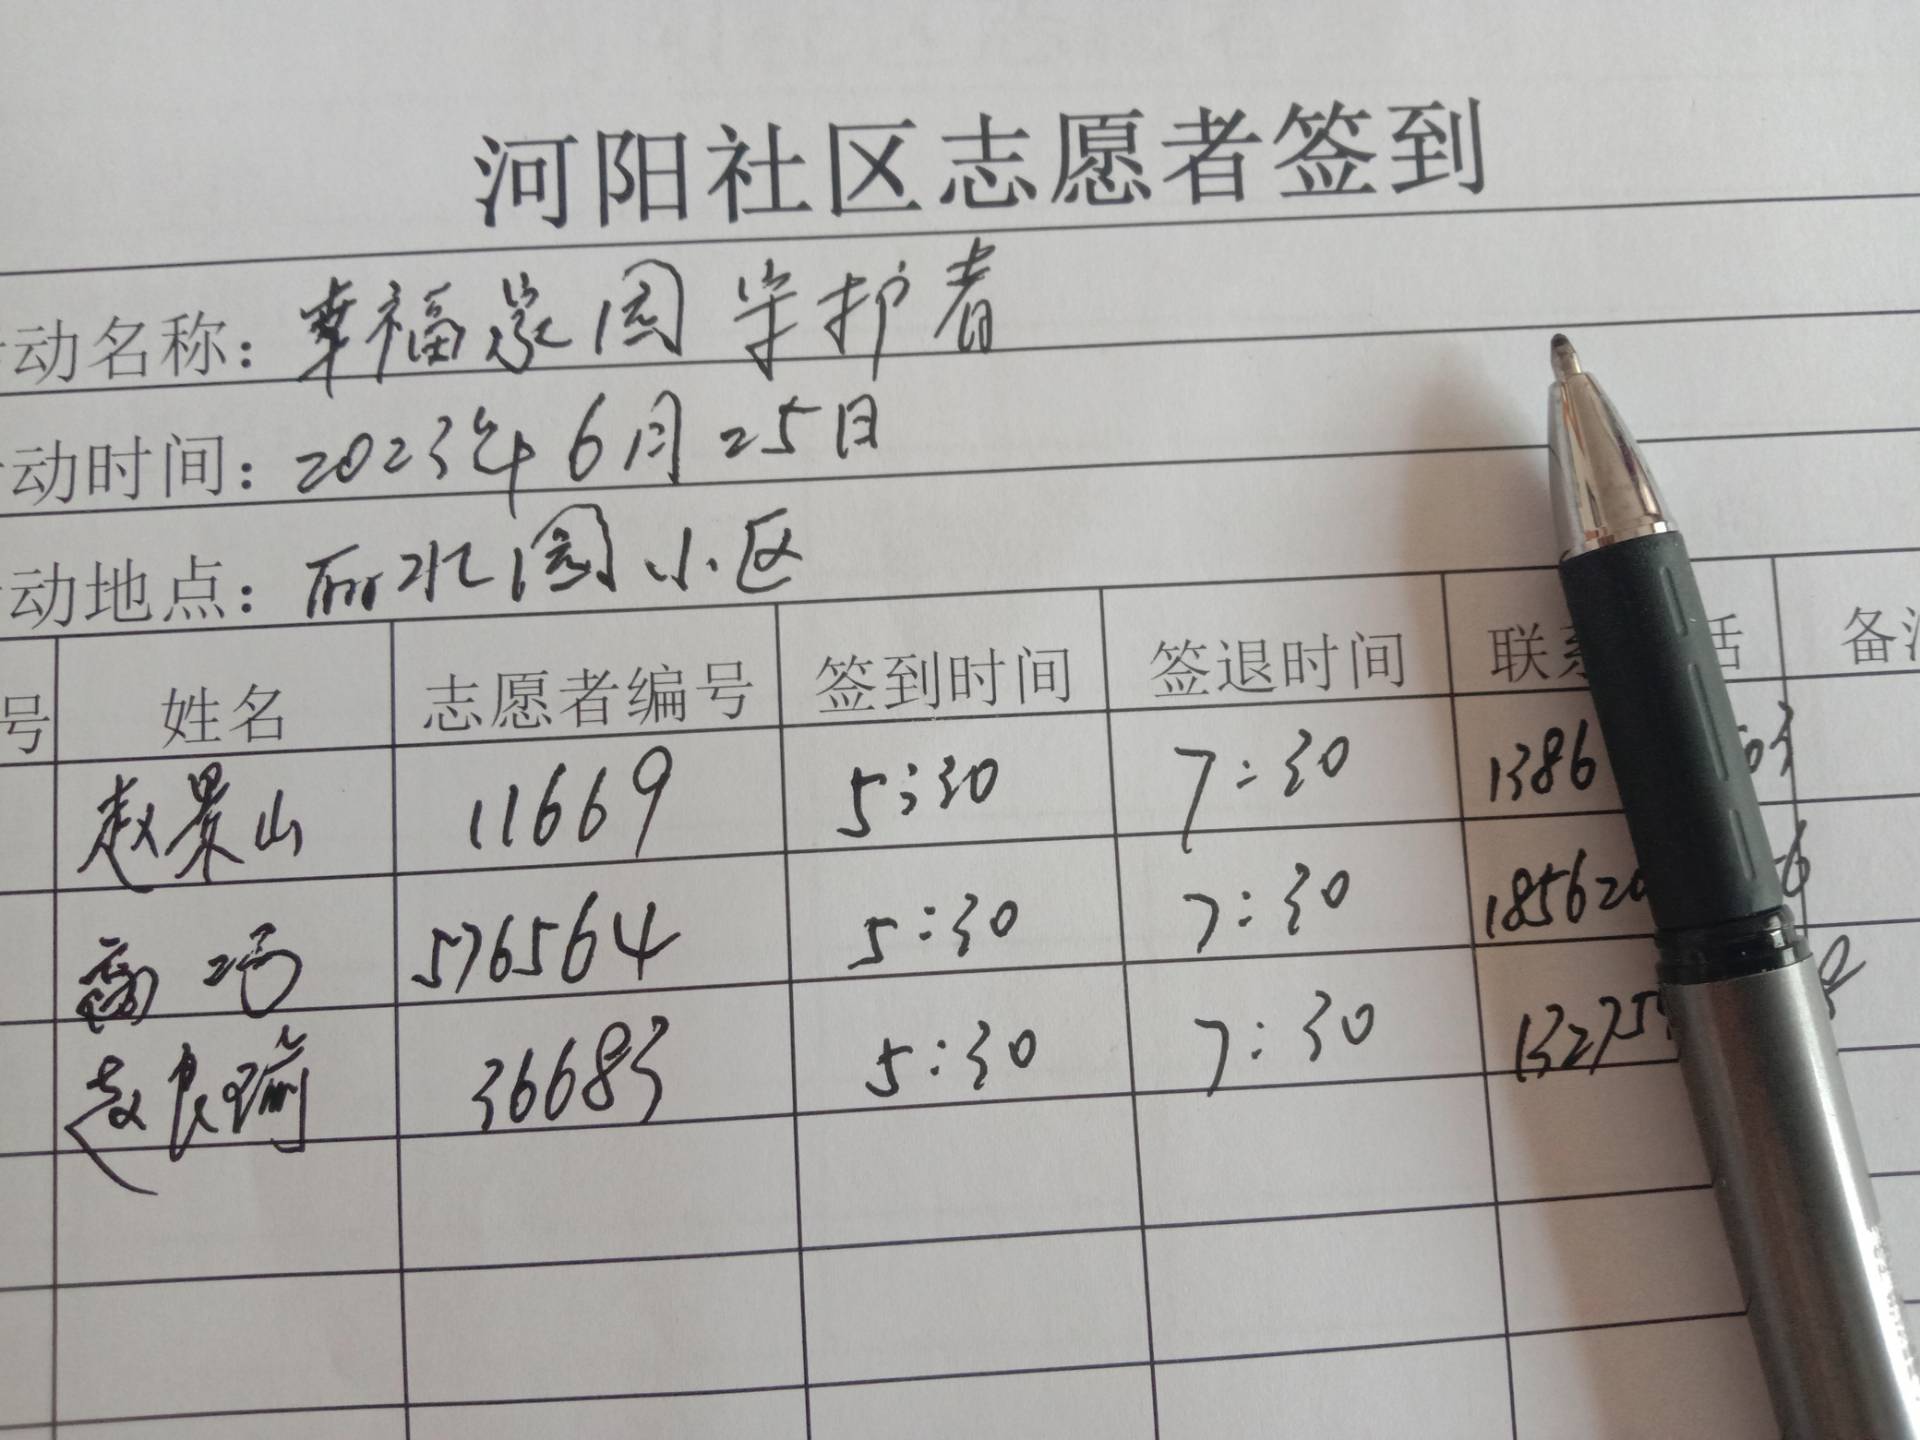 河阳社区志愿者签到
动名称：幸福家园守护者
动时间：2023年6月25日
动地点：丽水园小区
号 姓名 志愿者编号 签到时间 签退时间 联系 话 备注
赵景山 11669 5:30 7:30 1386 63
576564 5:30 7:30 185620 6
赵良瑜 36683 5:30 7:30 13275